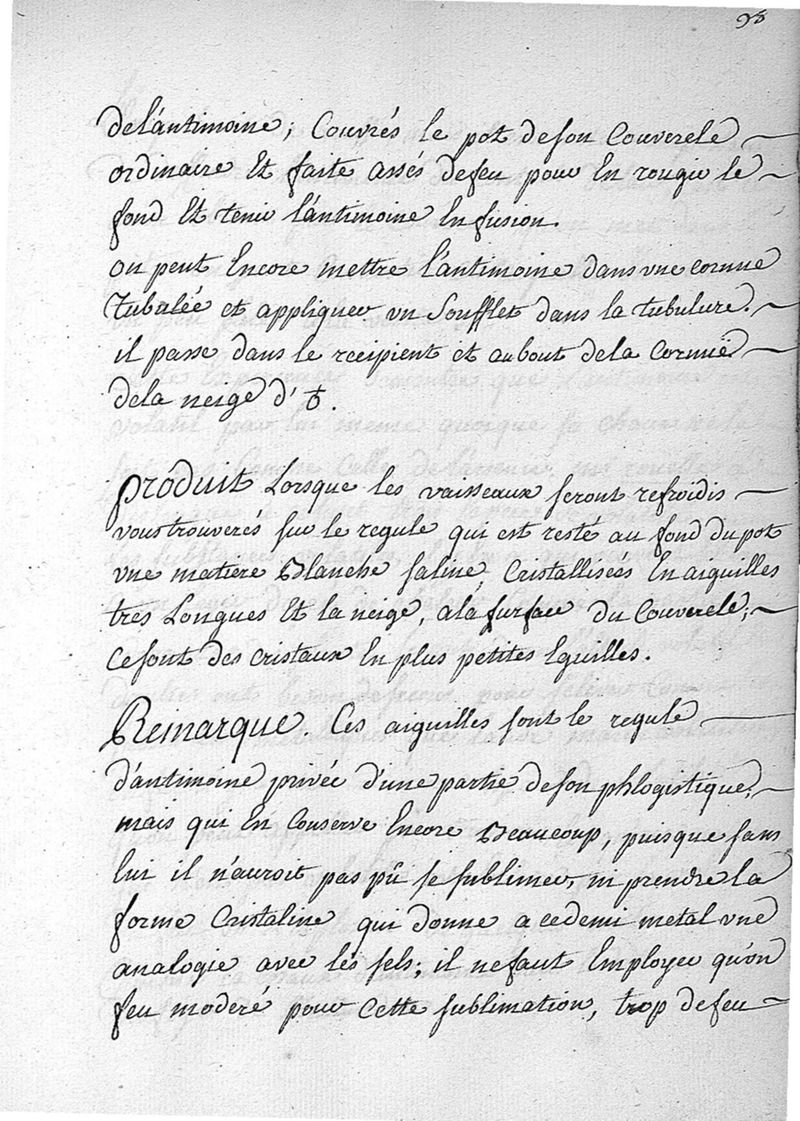 98
de l'antimoine; Couvrés le pot de son Couvercle
ordinaire Et faite assés de feu pour En rougir le
fond Et tenir l'antimoine En fusion.
on peut Encore mettre l'antimoine dans une cornue
Tubulée et appliquer un Soufflet dans la tubulure.
il passe dans le recipient et au bout de la Cornuë
de la neige d'♁.
Produit Lorsque les vaisseaux seront refroidis
vous trouverés sur le regule qui est resté au fond du pot
une matiere Blanche saline, Cristallisées En aiguilles
très Longues Et la neige, a la surface du Couvercle,
Ce sont des cristaux En plus petites Eguilles.
Remarque. Ces aiguilles sont le regule
d'antimoine privée d'une partie de son phlogistique,
mais qui En Conserve Encore Beaucoup, puisque sans
lui il n'auroit pas pû se sublimer, ni prendre la
forme Cristaline qui donne a ce demi metal une
analogie avec les sels; il ne faut Employer qu'on
feu moderé pour Cette sublimation, trop de feu